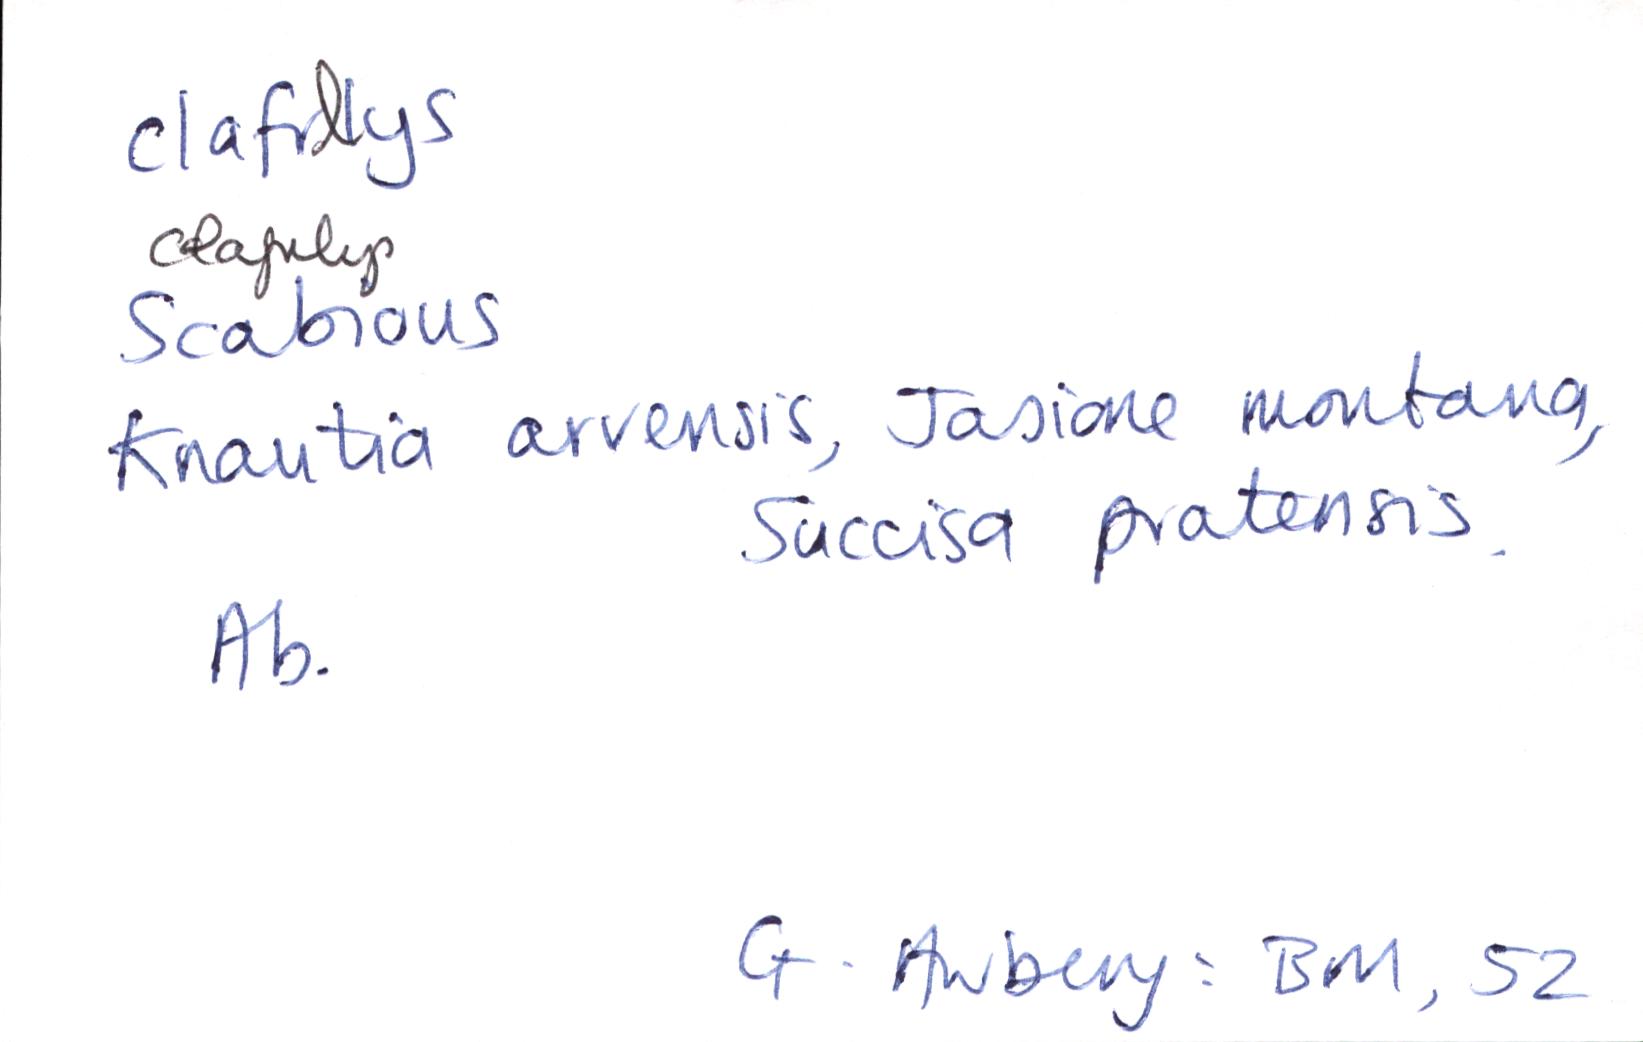 clafrllys
clafrlys
Scabious
Knautia arvensis, Jasione montana,
Succisa pratensis.
Ab.
G. Awbery: BM, 52